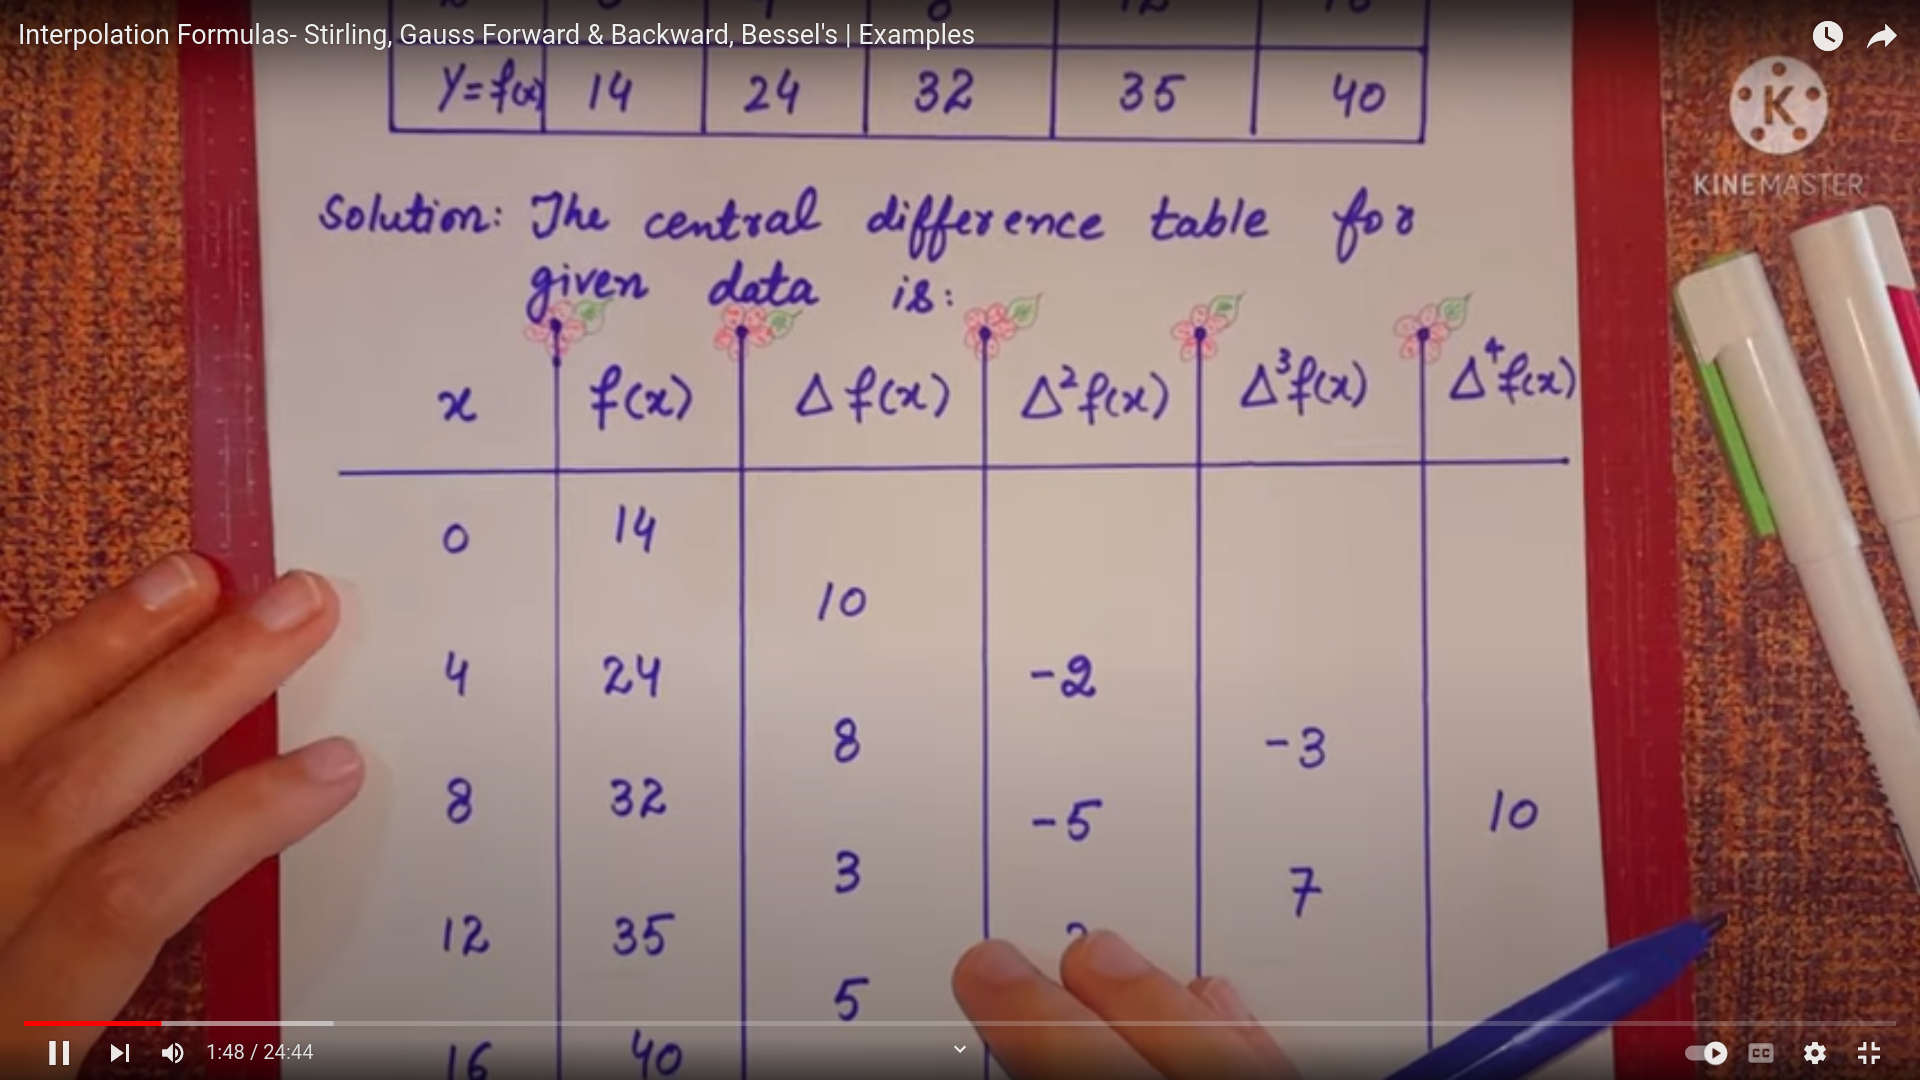 Interpolation Formulas- Stirling, Gauss Forward & Backward, Bessel's | Examples
Y=f(x) 14 24 32 35 40
K
KINEMASTER
Solution: The central difference table for
given data is:
x f(x) Δf(x) Δ²f(x) Δ³f(x) Δ⁴f(x)
0 14
10
4 24 -2
8 -3
8 32 -5 10
3 7
12 35
5
16 40
1:48 / 24:44
CC